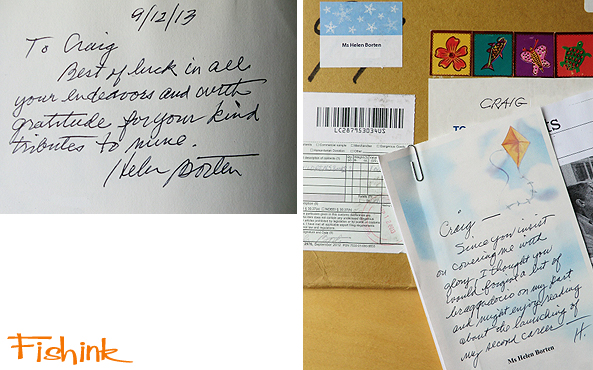 9/12/13
To Craig
Best of luck in all
your endeavors and with
gratitude for your kind
tributes to mine.
Helen Borten
Fishink
Ms Helen Borten
CRAIG
LC287953034US
Craig —
Since you insist
on covering me with
glory, I thought you
would forgive a bit of
braggadocio on my part
and might enjoy reading
about the launching of
my second career —
H.
Ms Helen Borten